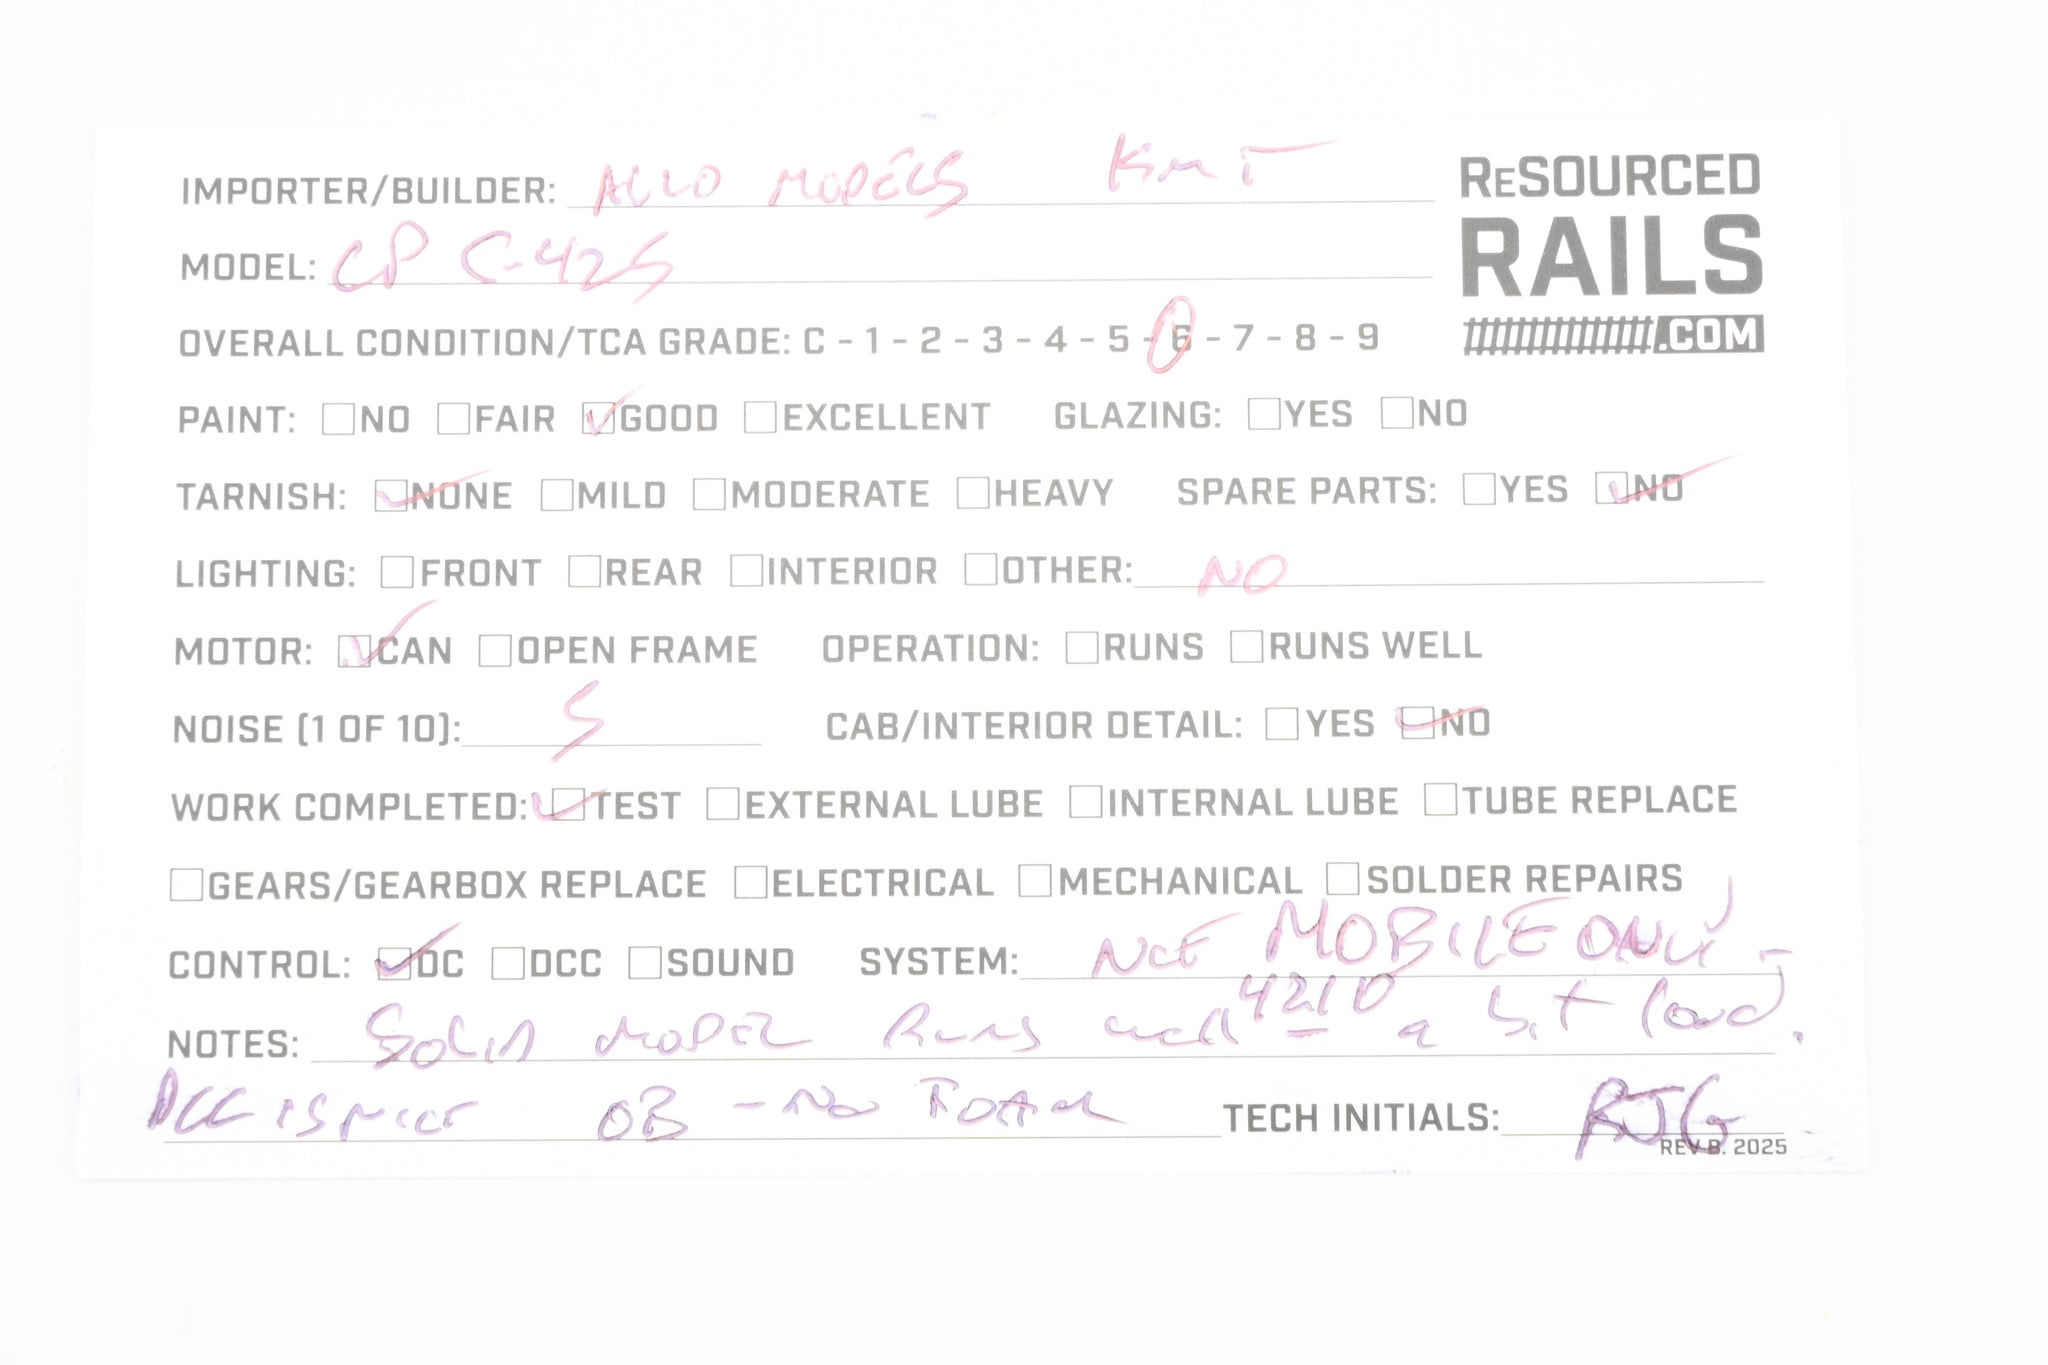 IMPORTER/BUILDER: ALCO MODELS KMT
RESOURCED
RAILS
.COM
MODEL: CP C-425
OVERALL CONDITION/TCA GRADE: C - 1 - 2 - 3 - 4 - 5 - 6 - 7 - 8 - 9
PAINT: ☐NO ☐FAIR ☑GOOD ☐EXCELLENT GLAZING: ☐YES ☐NO
TARNISH: ☑NONE ☐MILD ☐MODERATE ☐HEAVY SPARE PARTS: ☐YES ☑NO
LIGHTING: ☐FRONT ☐REAR ☐INTERIOR ☐OTHER: NO
MOTOR: ☑CAN ☐OPEN FRAME OPERATION: ☐RUNS ☐RUNS WELL
NOISE (1 OF 10): 5 CAB/INTERIOR DETAIL: ☐YES ☑NO
WORK COMPLETED: ☑TEST ☐EXTERNAL LUBE ☐INTERNAL LUBE ☐TUBE REPLACE
☐GEARS/GEARBOX REPLACE ☐ELECTRICAL ☐MECHANICAL ☐SOLDER REPAIRS
CONTROL: ☑DC ☐DCC ☐SOUND SYSTEM: NCE MOBILE ONLY -
4210
NOTES: SOLID MODEL RUNS well a bit loud.
DCC IS NICE OB - NO FOAM TECH INITIALS: RJG
REV B. 2025